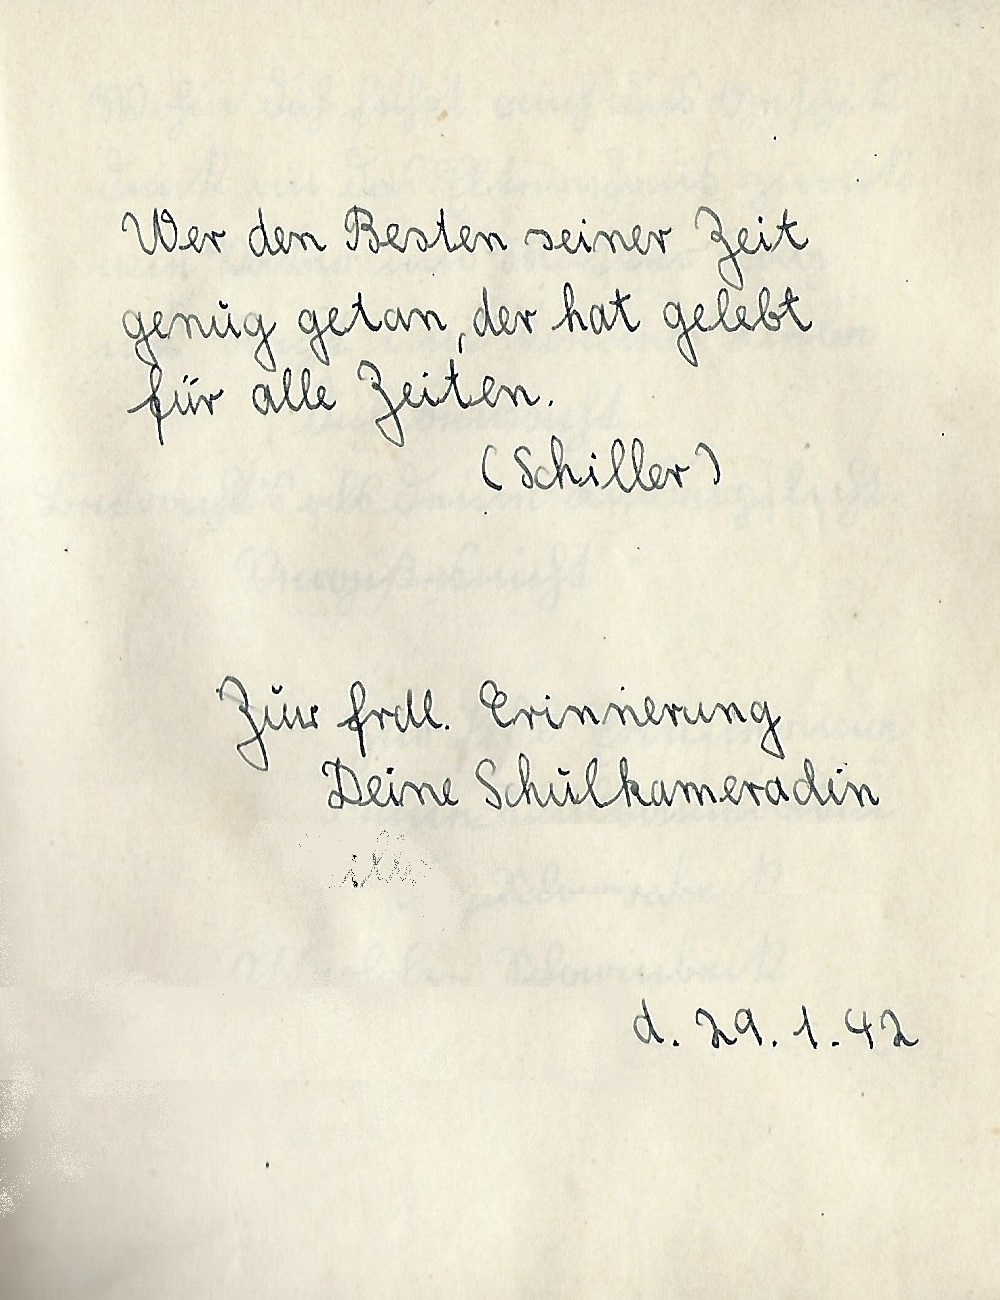 Wer den Besten seiner Zeit
genug getan, der hat gelebt
für alle Zeiten.
(Schiller)
Zur frdl. Erinnerung
Deine Schulkameradin
d. 29. 1. 42